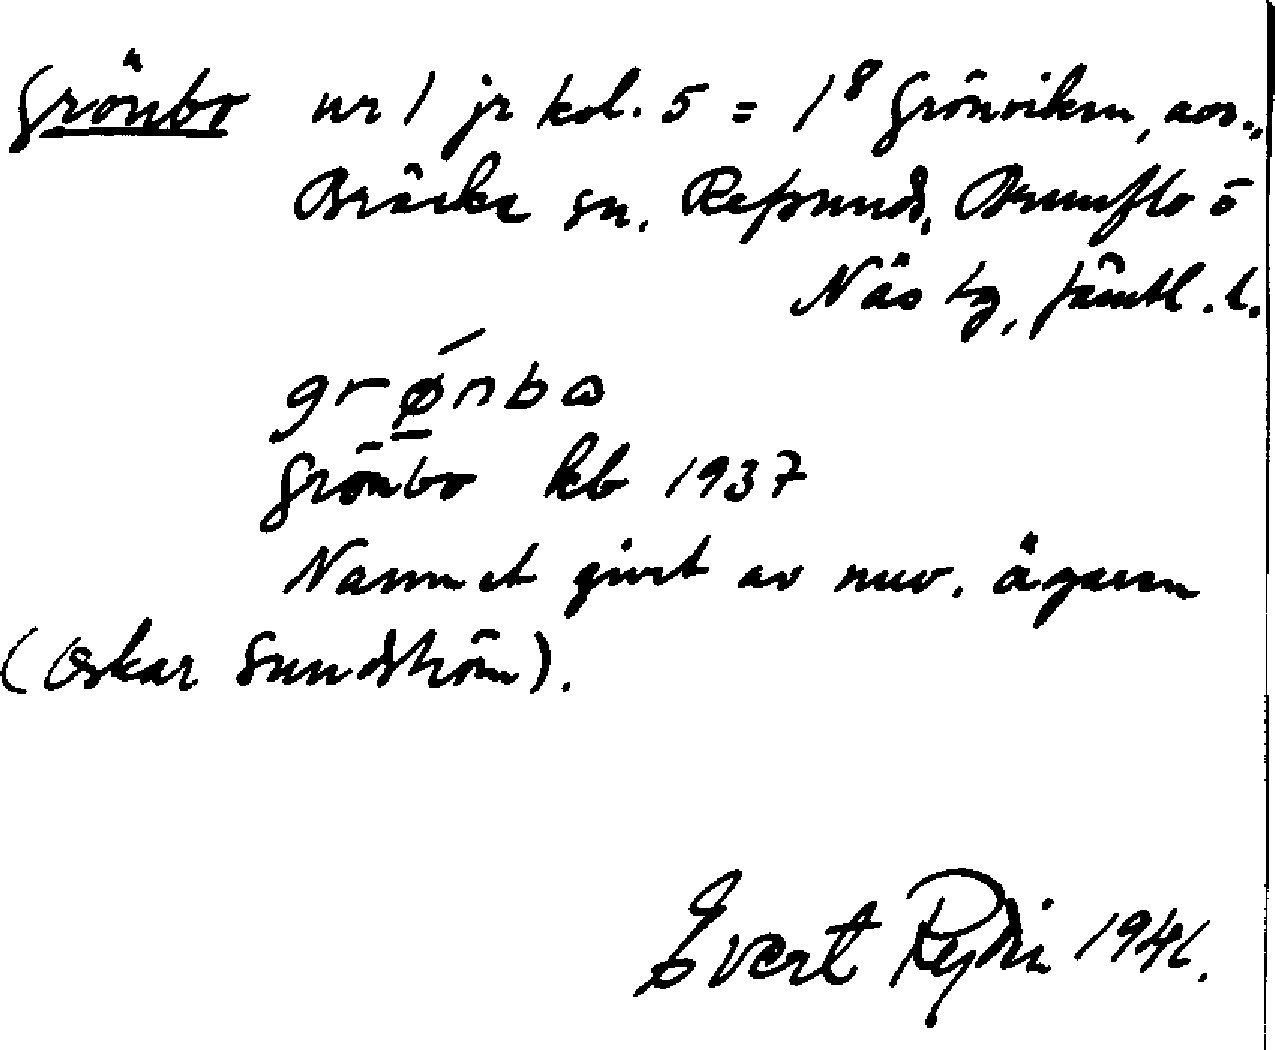 Grönbo nr 1 jr kol. 5 = 1⁸ Grönviken, avs.,
Bräcke sn. Refsunds, Brunflo o
Näs tg, Jämtl. l.
grǿnbω
Grönbo kb 1937
Namnet givet av nuv. ägaren
(Oskar Sundström).
Evert 1941.